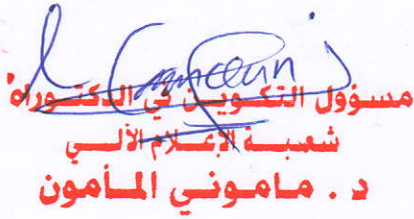 مسؤول التكوين في الدكتوراه
شعبة الإعلام الآلي
د. ماموني المأمون